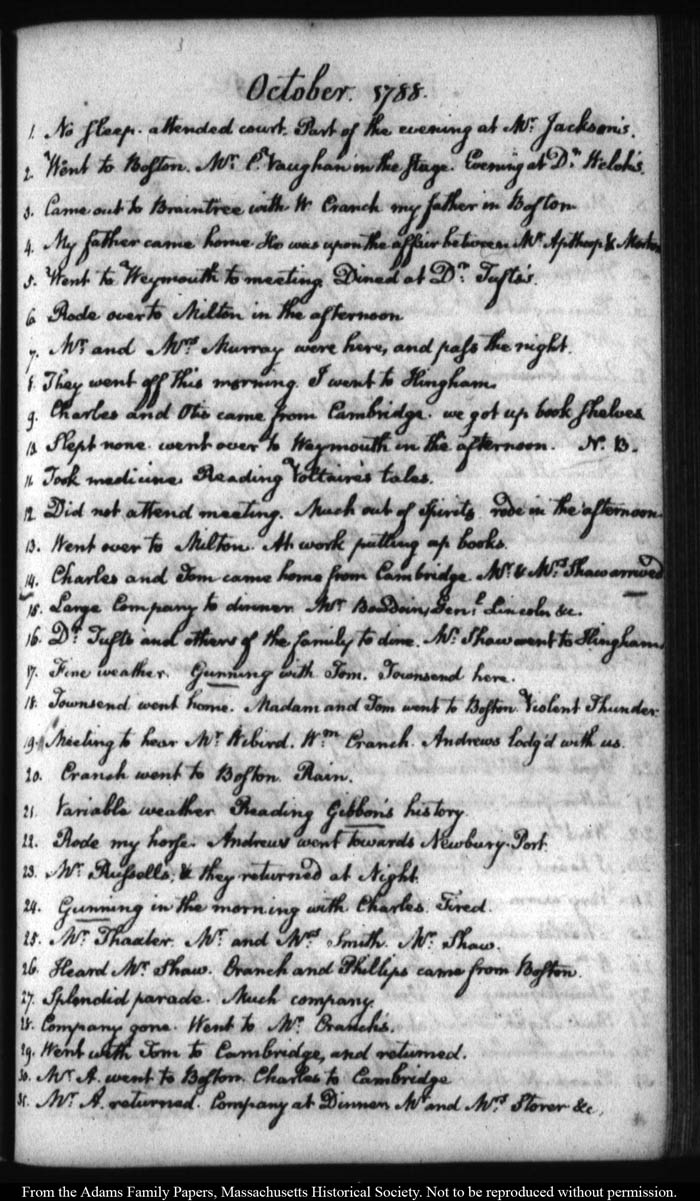 October. 1788.
1. No sleep. attended court. Part of the evening at Mr. Jackson's.
2. Went to Boston. Mr. C. Vaughan in the stage. Evening at Dr. Welsh's.
3. Came out to Braintree with W. Cranch my father in Boston
4. My father came home. He was upon the affair between Mr. Apthorp & Morton
5. Went to Weymouth to meeting. Dined at Dr. Tufts's.
6. Rode over to Milton in the afternoon
7. Mr. and Mrs. Murray were here, and pass the night.
8. They went off this morning. I went to Hingham.
9. Charles and Otis came from Cambridge. we got up book shelves
10. Slept none. went over to Weymouth in the afternoon. N. B.
11. Took medicine. Reading Voltaire's tales.
12. Did not attend meeting. Much out of spirits. rode in the afternoon.
13. Went over to Milton. At work putting up books.
14. Charles and Tom came home from Cambridge. Mr. & Mrs. Shaw arrived
15. Large Company to dinner. Mr. Bowdoin, Genl. Lincoln &c.
16. Dr. Tufts and others of the family to dine. Mr. Shaw went to Hingham.
17. Fine weather. Gunning with Tom. Townsend here.
18. Townsend went home. Madam and Tom went to Boston. Violent Thunder.
19. Meeting to hear Mr. Wibird. Wm. Cranch. Andrews lodg'd with us.
20. Cranch went to Boston. Rain.
21. Variable weather. Reading Gibbon's history.
22. Rode my horse. Andrews went towards Newbury-Port.
23. Mr. Russells; & they returned at Night.
24. Gunning in the morning with Charles. Tired.
25. Mr. Thaxter. Mr. and Mrs. Smith. Mr. Shaw.
26. Heard Mr. Shaw. Cranch and Phillips came from Boston.
27. Splendid parade. Much company.
28. Company gone. Went to Mr. Cranch's.
29. Went with Tom to Cambridge, and returned.
30. Mr. A. went to Boston. Charles to Cambridge
31. Mr. A. returned. Company at Dinner. Mr and Mrs. Storer &c.
From the Adams Family Papers, Massachusetts Historical Society. Not to be reproduced without permission.